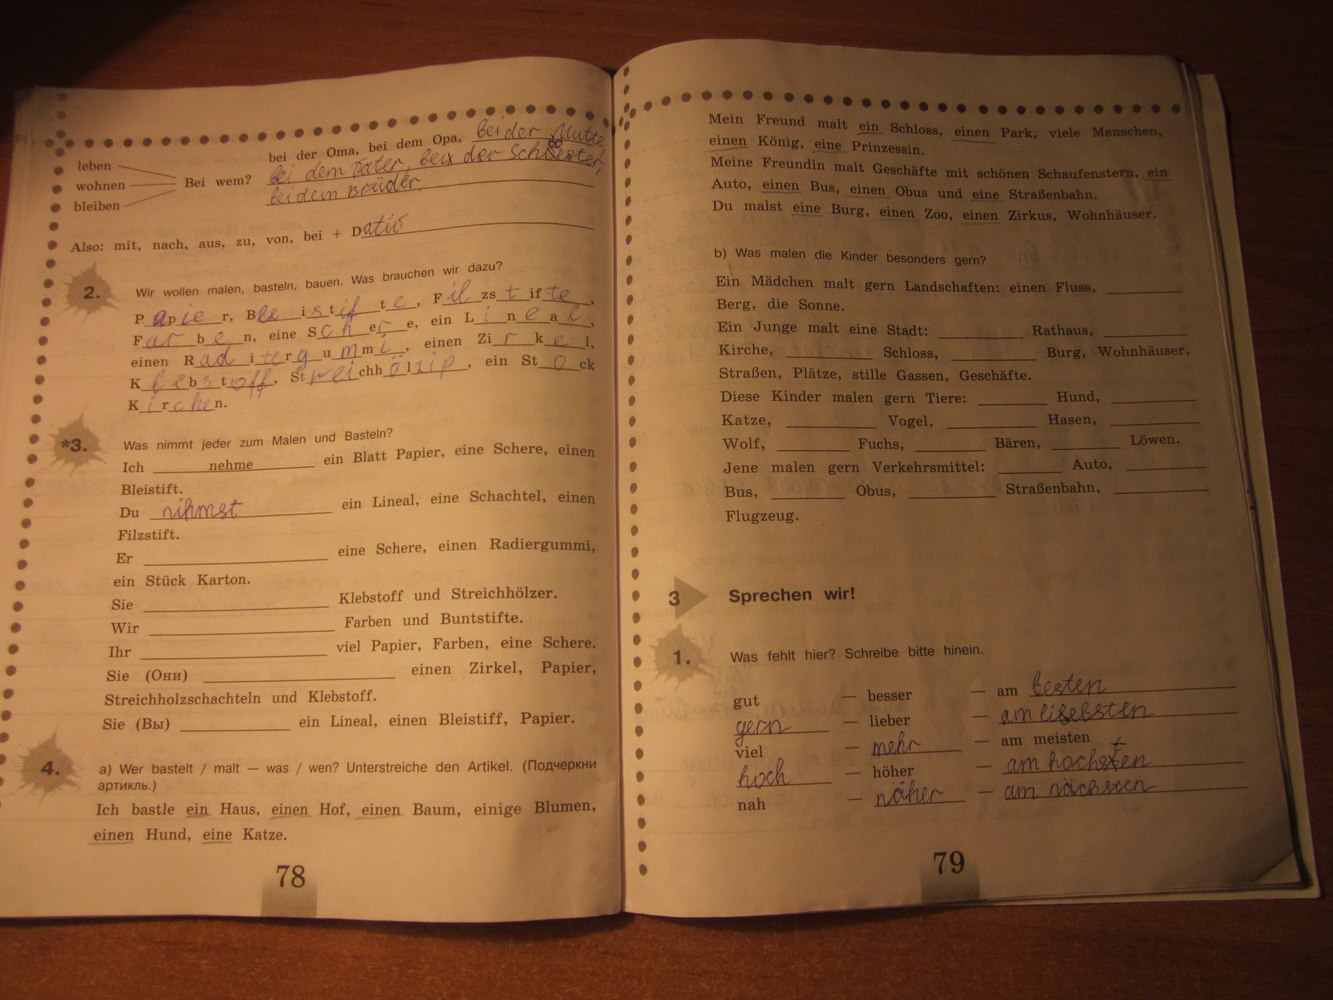 leben
wohnen
bleiben
Bei wem?
bei der Oma, bei dem Opa, bei der Mutte
bei dem Vater, bei der Schwester,
bei dem Brüder
Also: mit, nach, aus, zu, von, bei + Dativ
2. Wir wollen malen, basteln, bauen. Was brauchen wir dazu?
Papier, Bleistifte, Filzstifte,
Farben, eine Schere, ein Lineal,
einen Radiergummi, einen Zirkel,
Klebstoff, Streichhölzip, ein Stock
Kirchen.
*3. Was nimmt jeder zum Malen und Basteln?
Ich nehme ein Blatt Papier, eine Schere, einen
Bleistift.
Du nihmst ein Lineal, eine Schachtel, einen
Filzstift.
Er ____ eine Schere, einen Radiergummi,
ein Stück Karton.
Sie ____ Klebstoff und Streichhölzer.
Wir ____ Farben und Buntstifte.
Ihr ____ viel Papier, Farben, eine Schere.
Sie (Они) ____ einen Zirkel, Papier,
Streichholzschachteln und Klebstoff.
Sie (Вы) ____ ein Lineal, einen Bleistiff, Papier.
4. a) Wer bastelt / malt — was / wen? Unterstreiche den Artikel. (Подчеркни
артикль.)
Ich bastle ein Haus, einen Hof, einen Baum, einige Blumen,
einen Hund, eine Katze.
78
Mein Freund malt ein Schloss, einen Park, viele Menschen,
einen König, eine Prinzessin.
Meine Freundin malt Geschäfte mit schönen Schaufenstern, ein
Auto, einen Bus, einen Obus und eine Straßenbahn.
Du malst eine Burg, einen Zoo, einen Zirkus, Wohnhäuser.
b) Was malen die Kinder besonders gern?
Ein Mädchen malt gern Landschaften: einen Fluss, ____
Berg, die Sonne.
Ein Junge malt eine Stadt: ____ Rathaus, ____
Kirche, ____ Schloss, ____ Burg, Wohnhäuser,
Straßen, Plätze, stille Gassen, Geschäfte.
Diese Kinder malen gern Tiere: ____ Hund, ____
Katze, ____ Vogel, ____ Hasen, ____
Wolf, ____ Fuchs, ____ Bären, ____ Löwen.
Jene malen gern Verkehrsmittel: ____ Auto, ____
Bus, ____ Obus, ____ Straßenbahn, ____
Flugzeug.
3 Sprechen wir!
1. Was fehlt hier? Schreibe bitte hinein.
gut — besser — am besten
gern — lieber — am lisebsten
viel — mehr — am meisten
hoch — höher — am höchsten
nah — näher — am nächsten
79